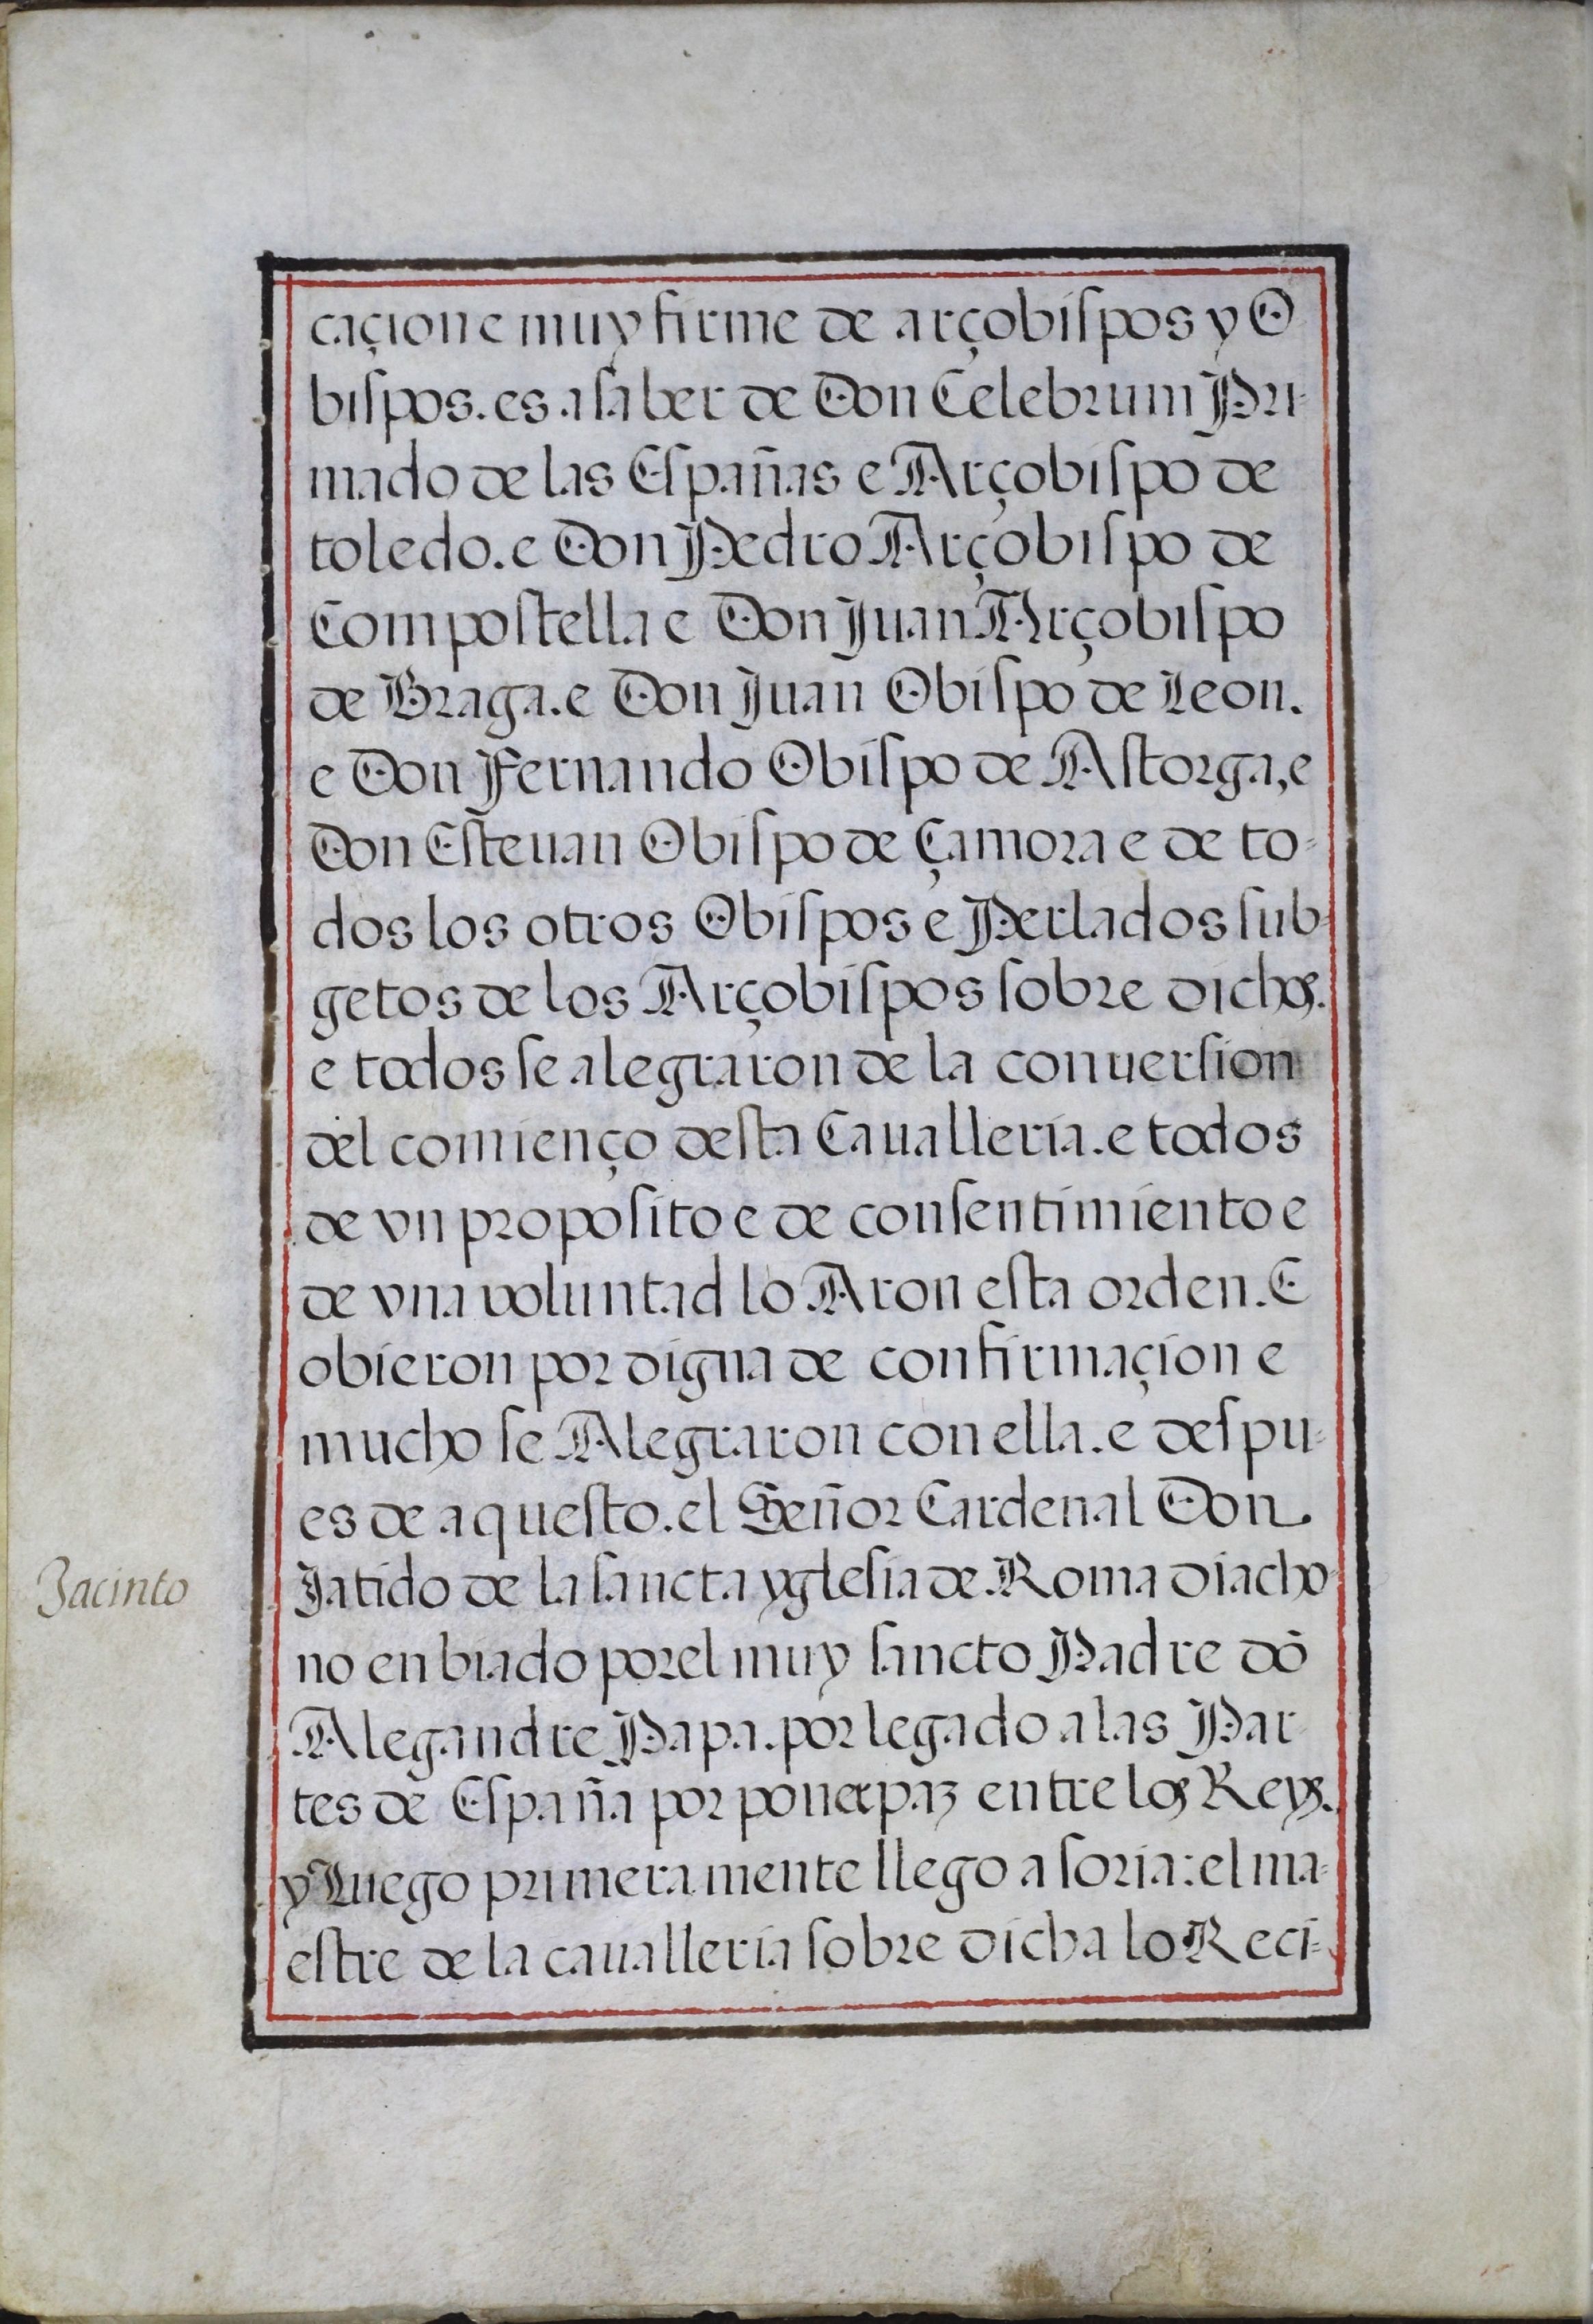 caçion e muy firme de arçobiſpos y O
biſpos. es a ſaber de Don Celebrum Pri-
mado de las Eſpañas e Arçobiſpo de
toledo. e Don Pedro Arçobiſpo de
Compoſtella e Don Juan Arçobiſpo
de Braga. e Don Juan Obiſpo de Leon.
e Don Fernando Obiſpo de Aſtorga, e
Don Eſteuan Obiſpo de Çamora e de to-
dos los otros Obiſpos e Perlados ſub-
getos de los Arçobiſpos ſobre dichos.
e todos ſe alegraron de la conuerſion
del comienço deſta Caualleria. e todos
de vn propoſito e de conſentimiento e
de vna voluntad lo Aron eſta orden. E
obieron por digna de confirmaçion e
mucho ſe Alegraron con ella. e deſpu-
es de aqueſto. el Señor Cardenal Don
Jacinto
Jatido de la ſancta ygleſia de Roma diacho-
no enbiado por el muy ſancto Padre dõ
Alegandre Papa. por legado a las Par-
tes de Eſpaña por poner paz entre los Reys.
y Luego primera mente llego a ſoria: el ma-
eſtre de la caualleria ſobre dicha lo Reci-